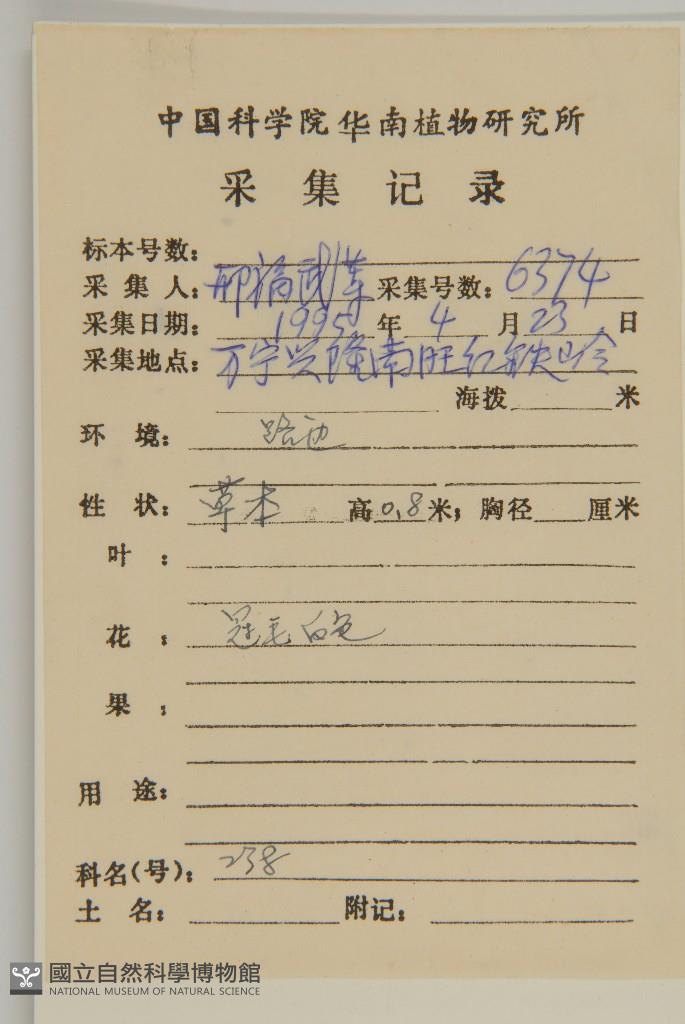 中国科学院华南植物研究所
采集记录
标本号数:
采集人: 邢福武等 采集号数: 6374
采集日期: 1995 年 4 月 23 日
采集地点: 万宁兴隆南旺红铁岭
海拨 米
环境: 路边
性状: 草本 高0.8米; 胸径 厘米
叶:
花: 冠毛白色
果:
用途:
科名(号): 238
土名: 附记:
國立自然科學博物館
NATIONAL MUSEUM OF NATURAL SCIENCE